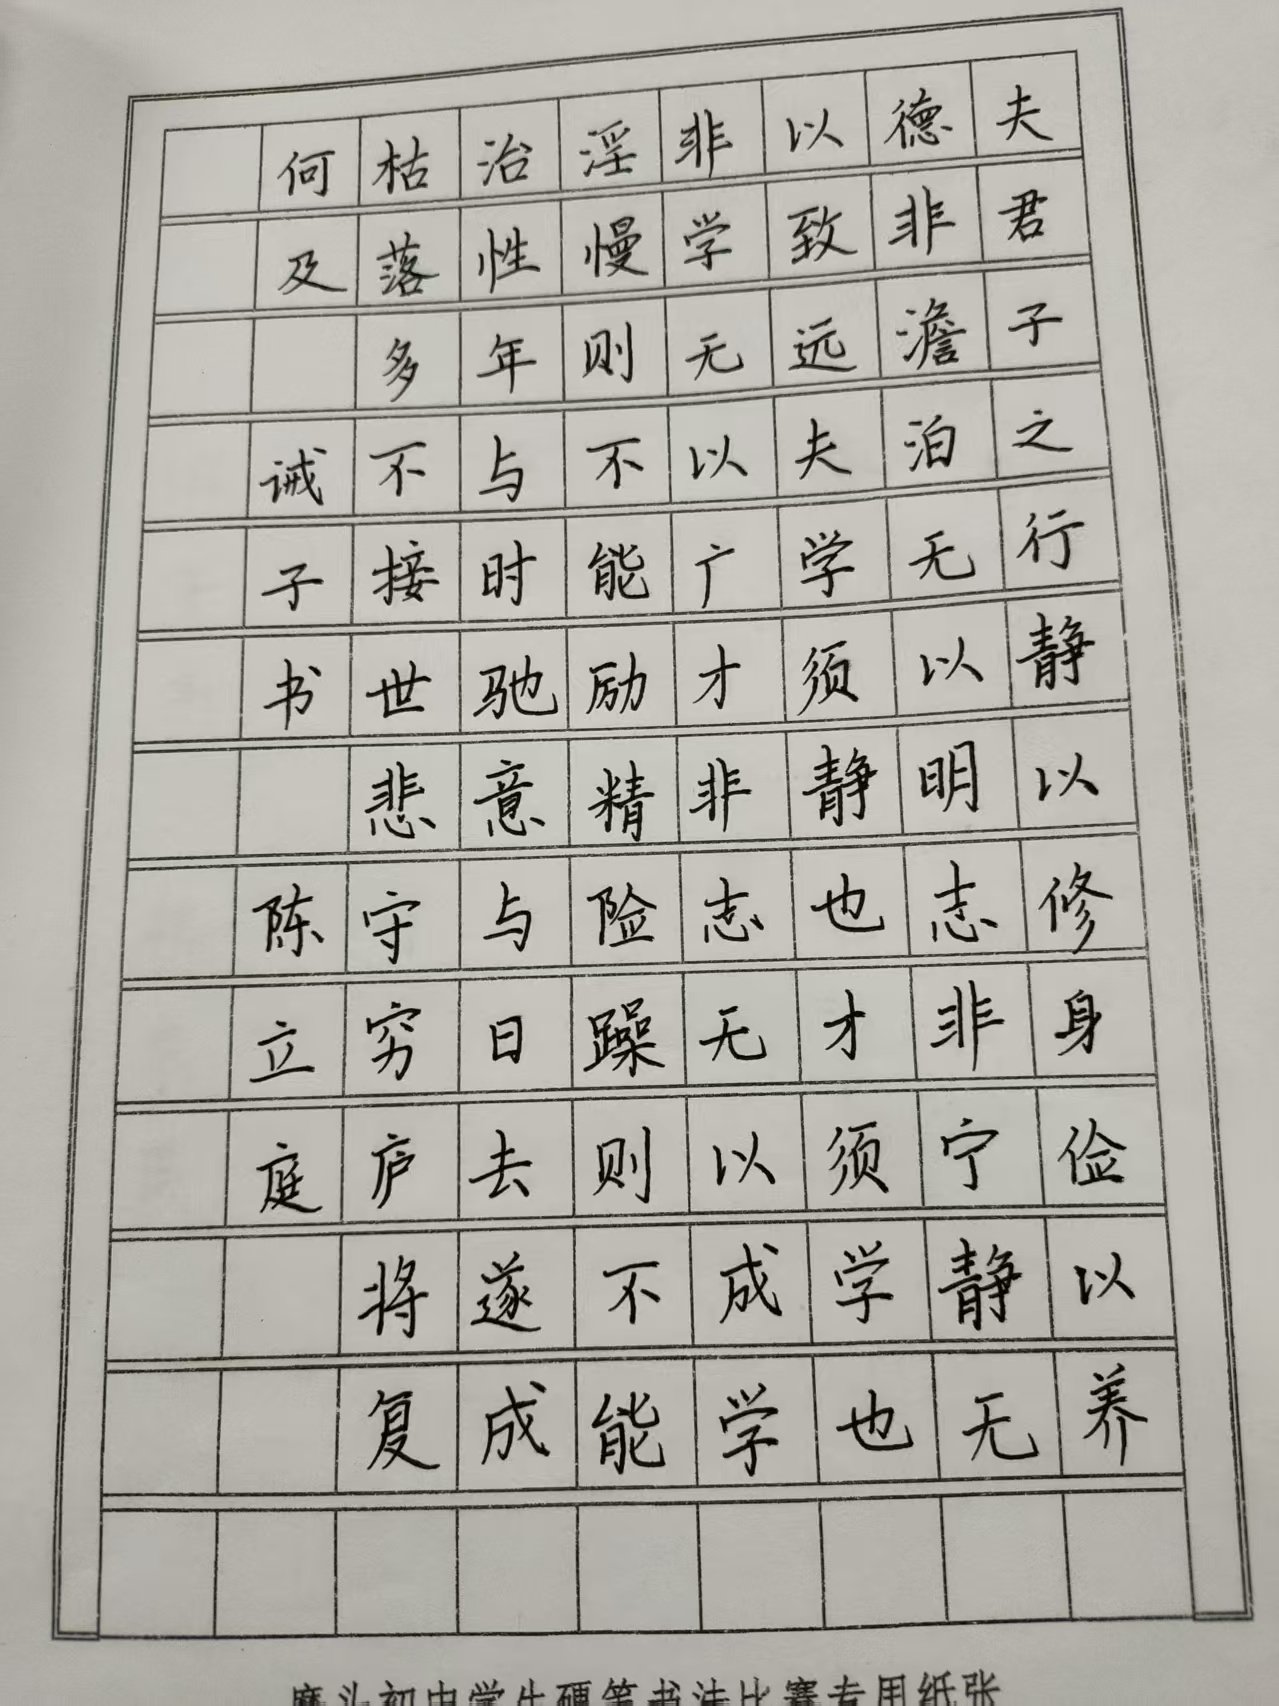 夫君子之行静以修身俭以养
德非澹泊无以明志非宁静无
以致远夫学须静也才须学也
非学无以广才非志无以成学
淫慢则不能励精险躁则不能
治性年与时驰意与日去遂成
枯落多不接世悲守穷庐将复
何及 诫子书 陈立庭
磨头初中学生硬笔书法比赛专用纸张